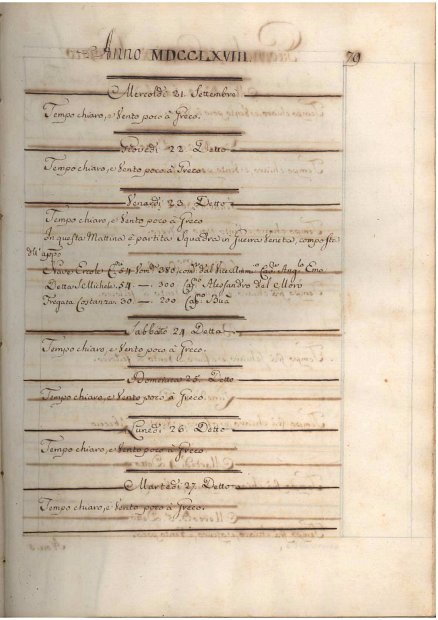 Anno MDCCLXVIII.
79
Mercoledì 21 Settembre
Tempo chiaro, e Vento poco à Greco.
Giovedì 22 Detto
Tempo chiaro, e Vento poco à Greco
Venardì 23 Detto
Tempo chiaro, e Vento poco à Greco
In questa Mattina è partita Squadra in Guerra Veneta, composta
Nave Ercole 64 380 Emo
Detta S. Michele 54 — 300 Alessandro del Moro
Fregata Costanza 30 — 200
Sabbato 24 Detto
Tempo chiaro, e Vento poco à Greco.
Domenica 25 Detto
Tempo chiaro, e Vento poco à Greco.
Lunedì 26 Detto
Tempo chiaro, e Vento poco à Greco
Martedì 27 Detto
Tempo chiaro, e Vento poco à Greco.